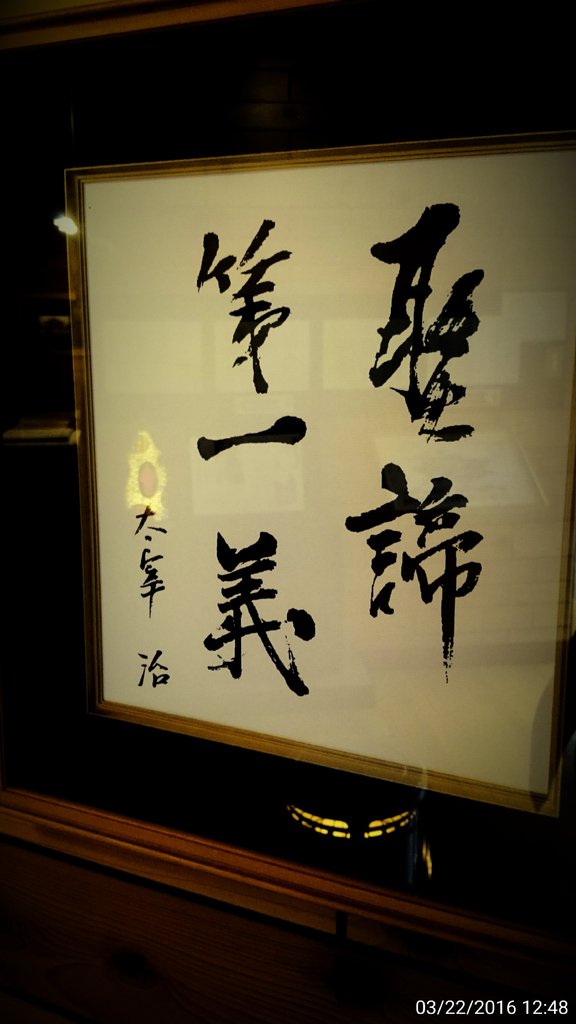 聖諦
第一義
太宰 治
03/22/2016 12:48